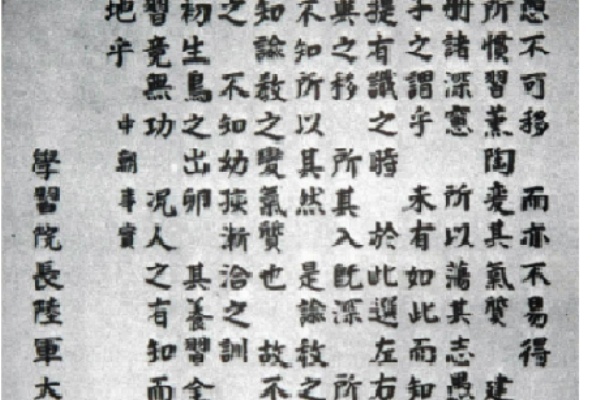 不可移　而亦不易得
所慣習薰陶変其氣質　建
册諸深窻　所以蕩其志愚
子之謂乎　未有如此而知
提有識之時　於此選左右
與之移　所其入既深　所
不知所以其然　是諭教之
知諭教之變氣質也　故不
之　不知幼孩漸洽之訓
初生鳥之出卵　其養習全
習竟無功　况人之有知而
地乎　中朝事實
學習院長陸軍大